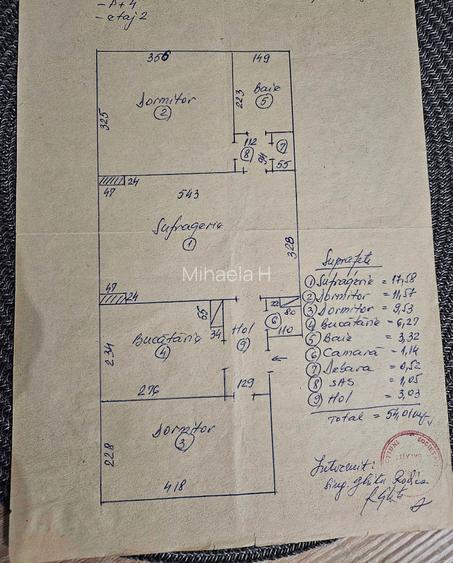 - P+4
- etaj 2
356
149
Dormitor
2
Baie
5
223
325
112
8
94
7
55
47
24
543
Sufragerie
1
328
Mihaela H
47
24
55
34
Bucătărie
4
Hol
9
22
80
6
110
234
276
129
Dormitor
3
228
418
Suprafețe
1 Sufragerie = 17,58
2 Dormitor = 11,57
3 Dormitor = 9,53
4 Bucătărie = 6,27
5 Baie = 3,32
6 Camara = 1,14
7 Debara = 0,52
8 SAS = 1,05
9 Hol = 3,03
Total = 54,01 mp
Intocmit:
ing.